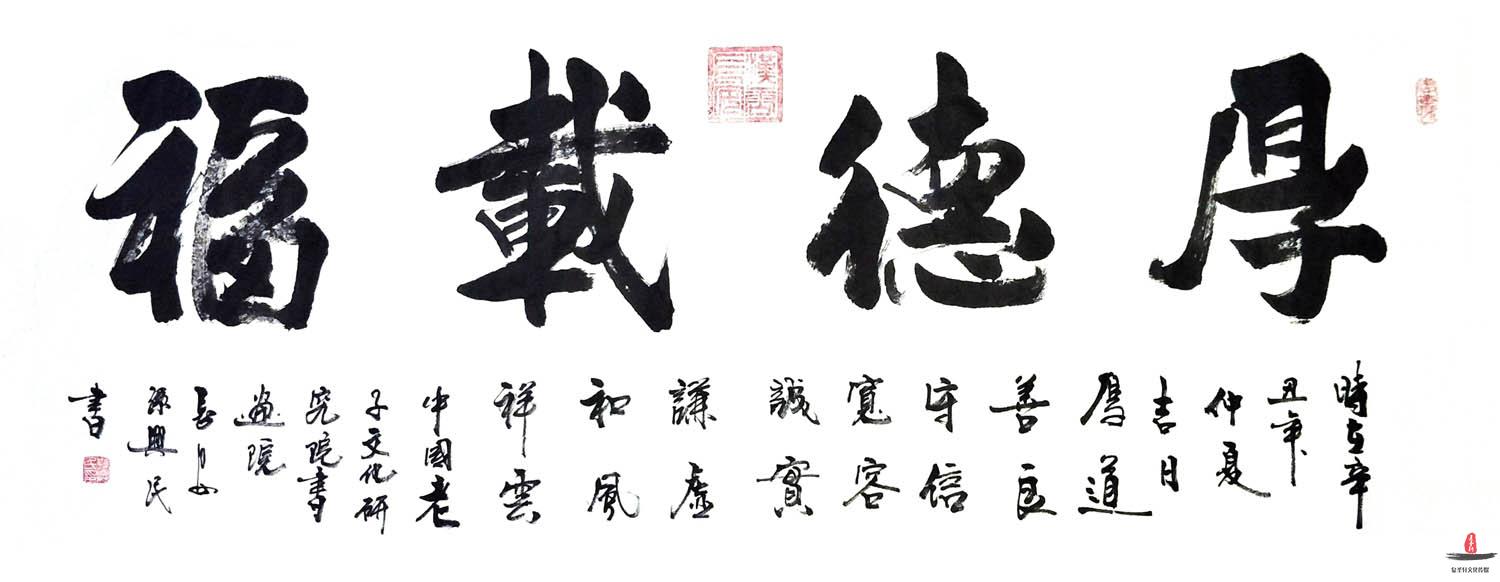 厚德載福
時在辛
丑年
仲夏
吉日
厚道
善良
守信
寬容
誠實
謙虛
和風
祥雲
中國老
子文化研
究院書
畫院
長
興民
書